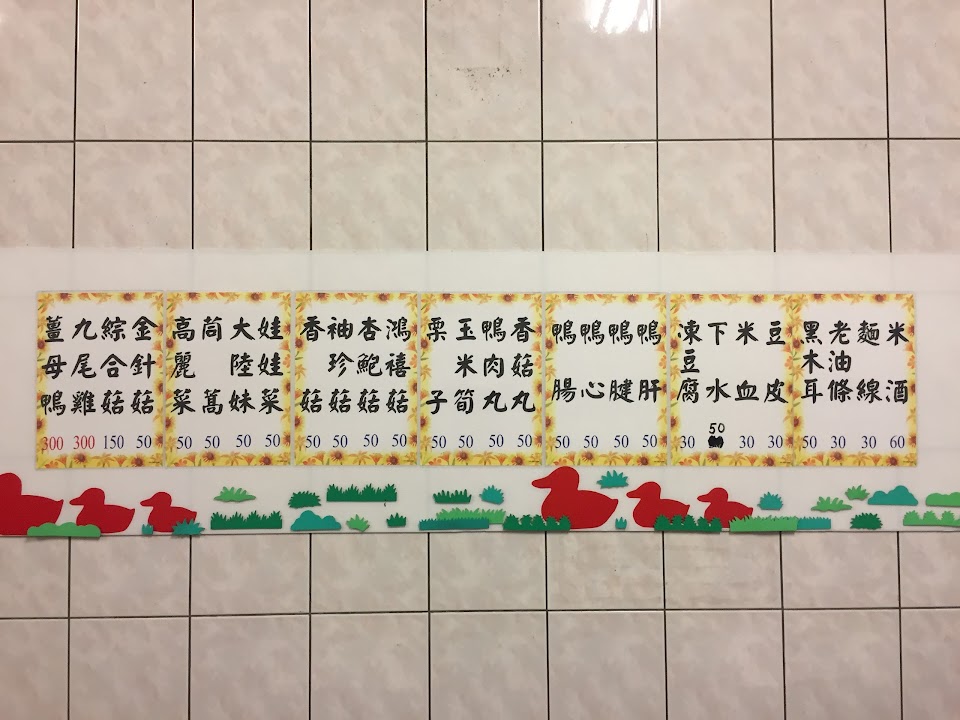 薑母鴨 300
九尾雞 300
綜合菇 150
金針菇 50
高麗菜 50
茼蒿 50
大陸妹 50
娃娃菜 50
香菇 50
袖珍菇 50
杏鮑菇 50
鴻禧菇 50
栗子 50
玉米筍 50
鴨肉丸 50
香菇丸 50
鴨腸 50
鴨心 50
鴨腱 50
鴨肝 50
凍豆腐 30
下水 50
米血 30
豆皮 30
黑木耳 50
老油條 30
麵線 30
米酒 60